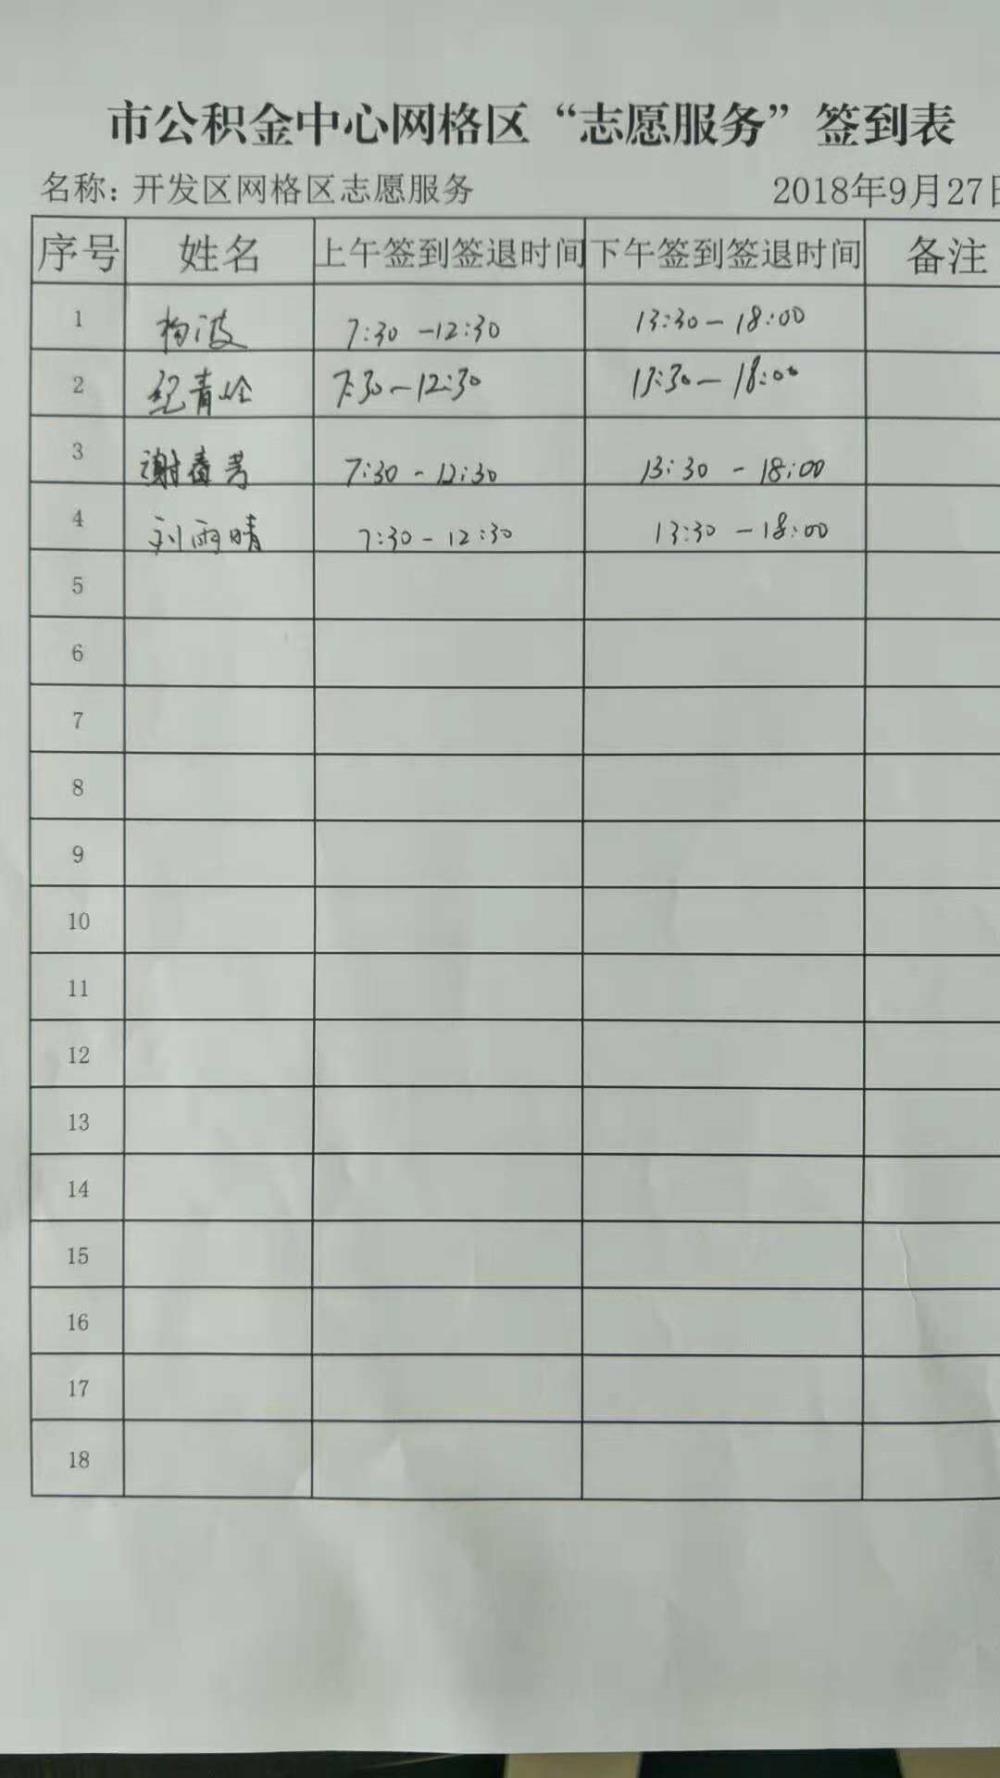 市公积金中心网格区“志愿服务”签到表
名称：开发区网格区志愿服务 2018年9月27日
序号 姓名 上午签到签退时间 下午签到签退时间 备注
1 杨波 7:30-12:30 13:30-18:00
2 纪青 7:30-12:30 13:30-18:00
3 谢春芳 7:30-12:30 13:30-18:00
4 刘雨晴 7:30-12:30 13:30-18:00
5
6
7
8
9
10
11
12
13
14
15
16
17
18